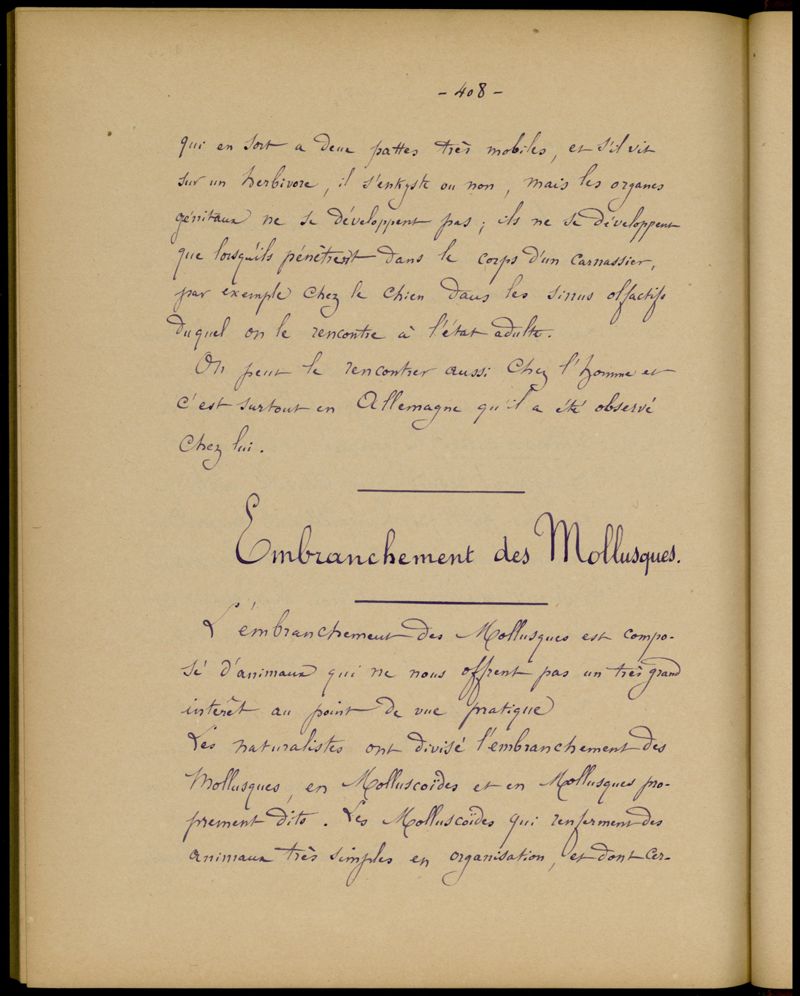 - 408 -
qui en sort a deux pattes très mobiles, et s'il vit
sur un herbivore, il s'enkyste ou non, mais les organes
génitaux ne se développent pas ; ils ne se développent
que lorsqu'ils pénètrent dans le corps d'un carnassier,
par exemple chez le chien dans les sinus olfactifs
duquel on le rencontre à l'état adulte.
On peut le rencontrer aussi chez l'homme et
c'est surtout en Allemagne qu'il a été observé
chez lui.
Embranchement des Mollusques.
L'embranchement des Mollusques est compo-
sé d'animaux qui ne nous offrent pas un très grand
intérêt au point de vue pratique
Les naturalistes ont divisé l'embranchement des
Mollusques, en Molluscoïdes et en Mollusques pro-
prement dits. Les Molluscoïdes qui renferment des
animaux très simples en organisation, et dont cer-